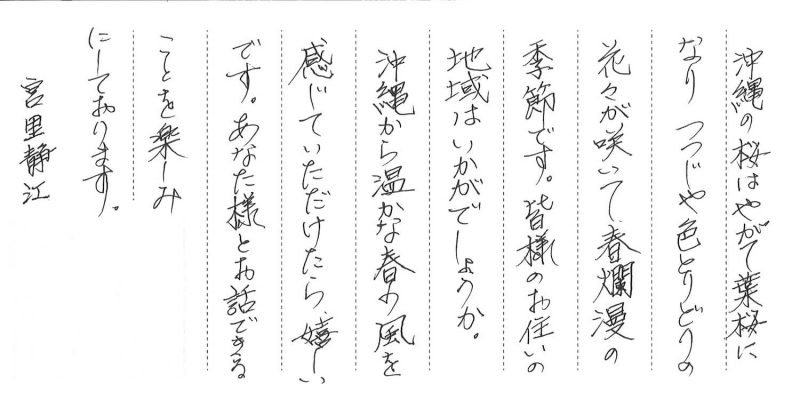 沖縄の桜はやがて葉桜に
なり つつじや色とりどりの
花々が咲いて、春爛漫の
季節です。皆様のお住いの
地域はいかがでしょうか。
沖縄から温かな春の風を
感じていただけたら嬉しい
です。あなた様とお話できる
ことを楽しみ
にしております。
宮里静江